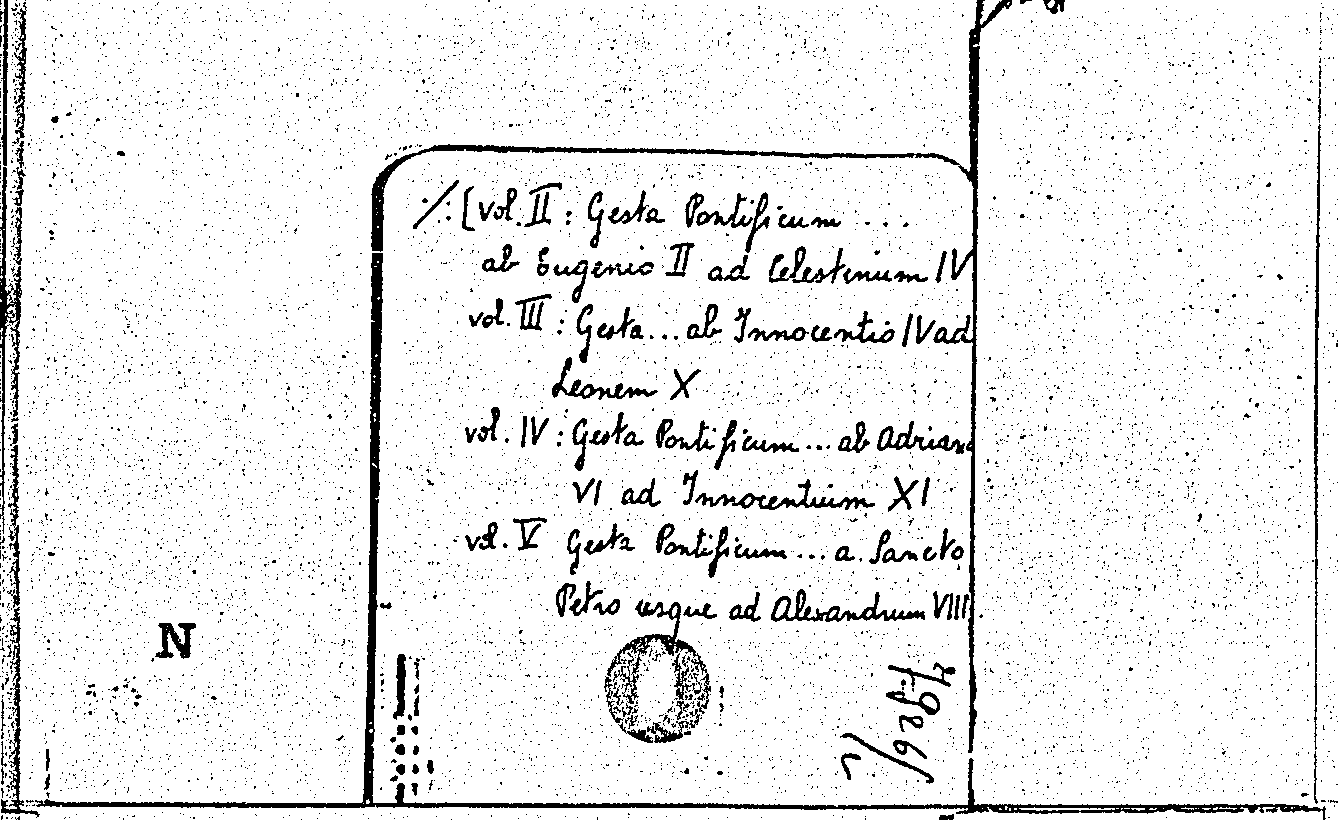 ./.: [vol. II : Gesta Pontificum ...
ab Eugenio II ad Celestinum IV
vol. III : Gesta ... ab Innocentio IV ad
Leonem X
vol. IV : Gesta Pontificum ... ab Adriano
VI ad Innocentium XI
vol. V Gesta Pontificum ... a Sancto
Petro usque ad Alexandrum VIII.
N